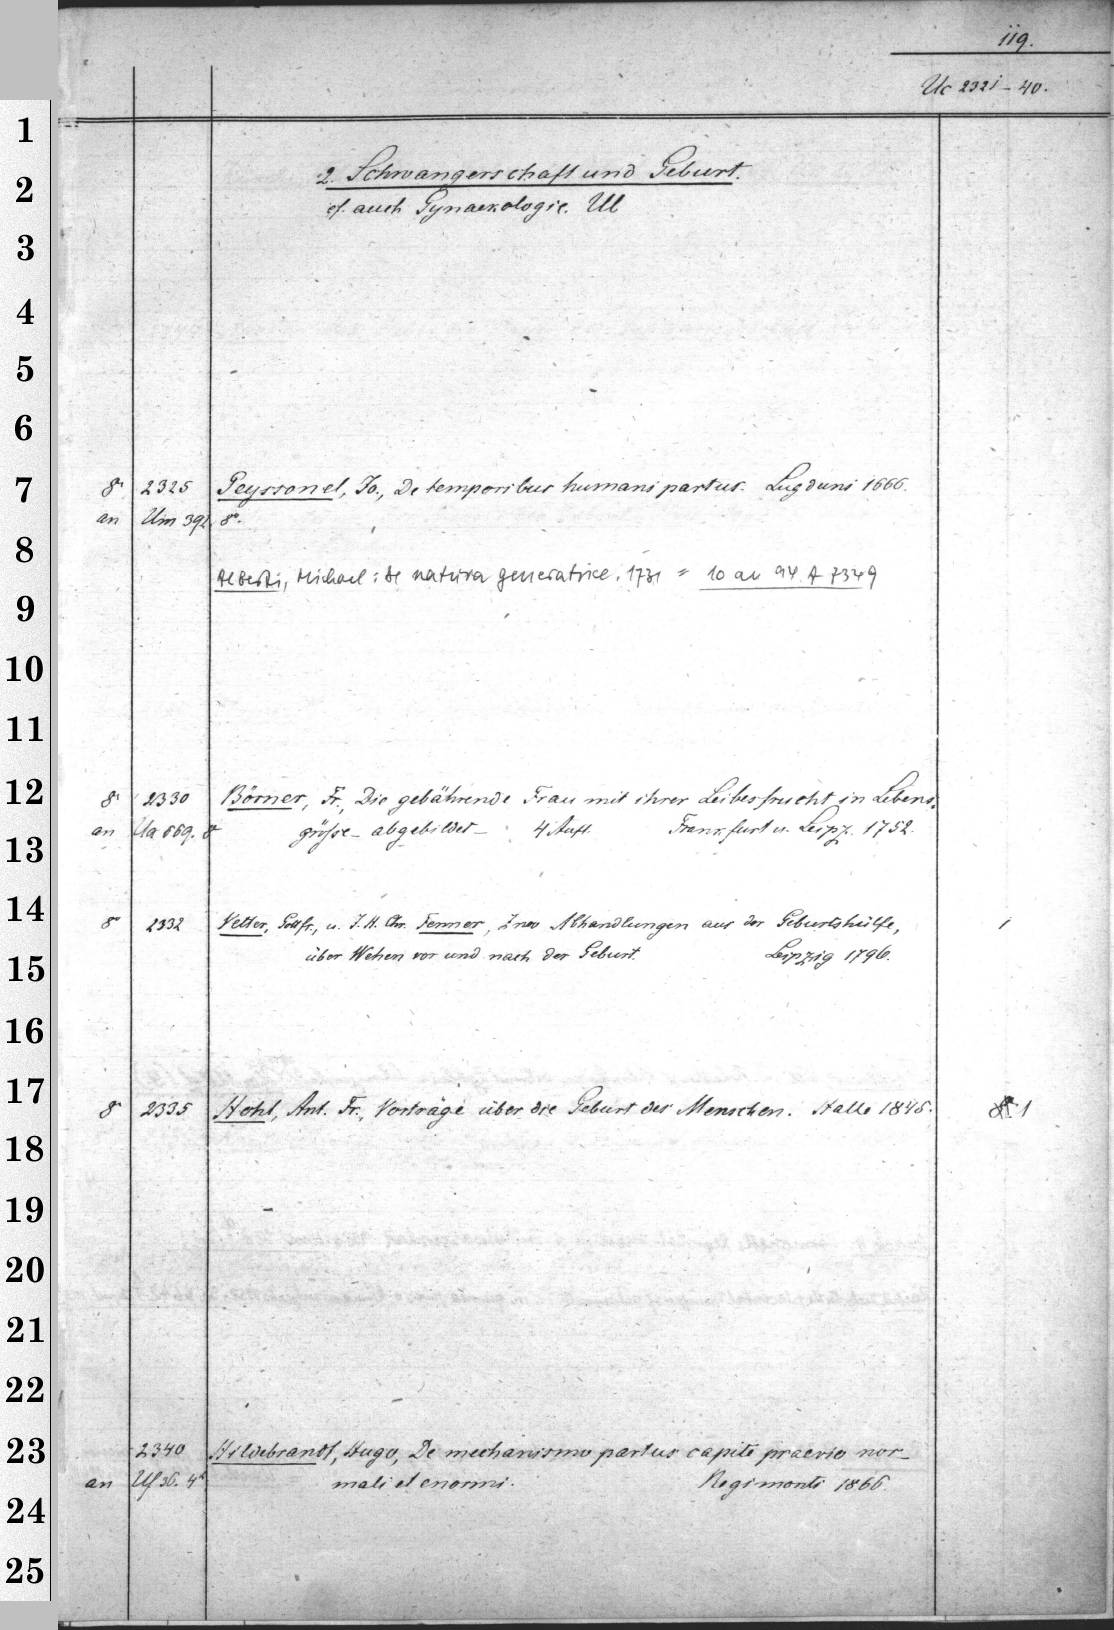 119.
Uc 2321-40.
2. Schwangerschaft und Geburt.
cf. auch Gynaekologie. Ul
8° 2325 Peyssonel, Jo., De temporibus humani partus. Lugduni 1666.
an Um 392. 8°.
Alberti, Michael: de natura generatrice. 1731 = 10 an 94 A 7349
8° 2330 Börner, Fr., Die gebährende Frau mit ihrer Leibesfrucht in Lebens-
an Ua 669. 8° grösse abgebildet 4 Aufl. Frankfurt u. Leipz. 1752.
8° 2332 Vetter, Gottfr., u. J. H. Chr. Fenner, Zwey Abhandlungen aus der Geburtshülfe, 1
über Wehen vor und nach der Geburt. Leipzig 1796.
8° 2335 Hohl, Ant. Fr., Vorträge über die Geburt des Menschen. Halle 1845. 1
2340 Hildebrandt, Hugo, De mechanismo partus capite praevio nor-
an Uf 36. 4° mali et enormi. Regimonti 1866.
1
2
3
4
5
6
7
8
9
10
11
12
13
14
15
16
17
18
19
20
21
22
23
24
25